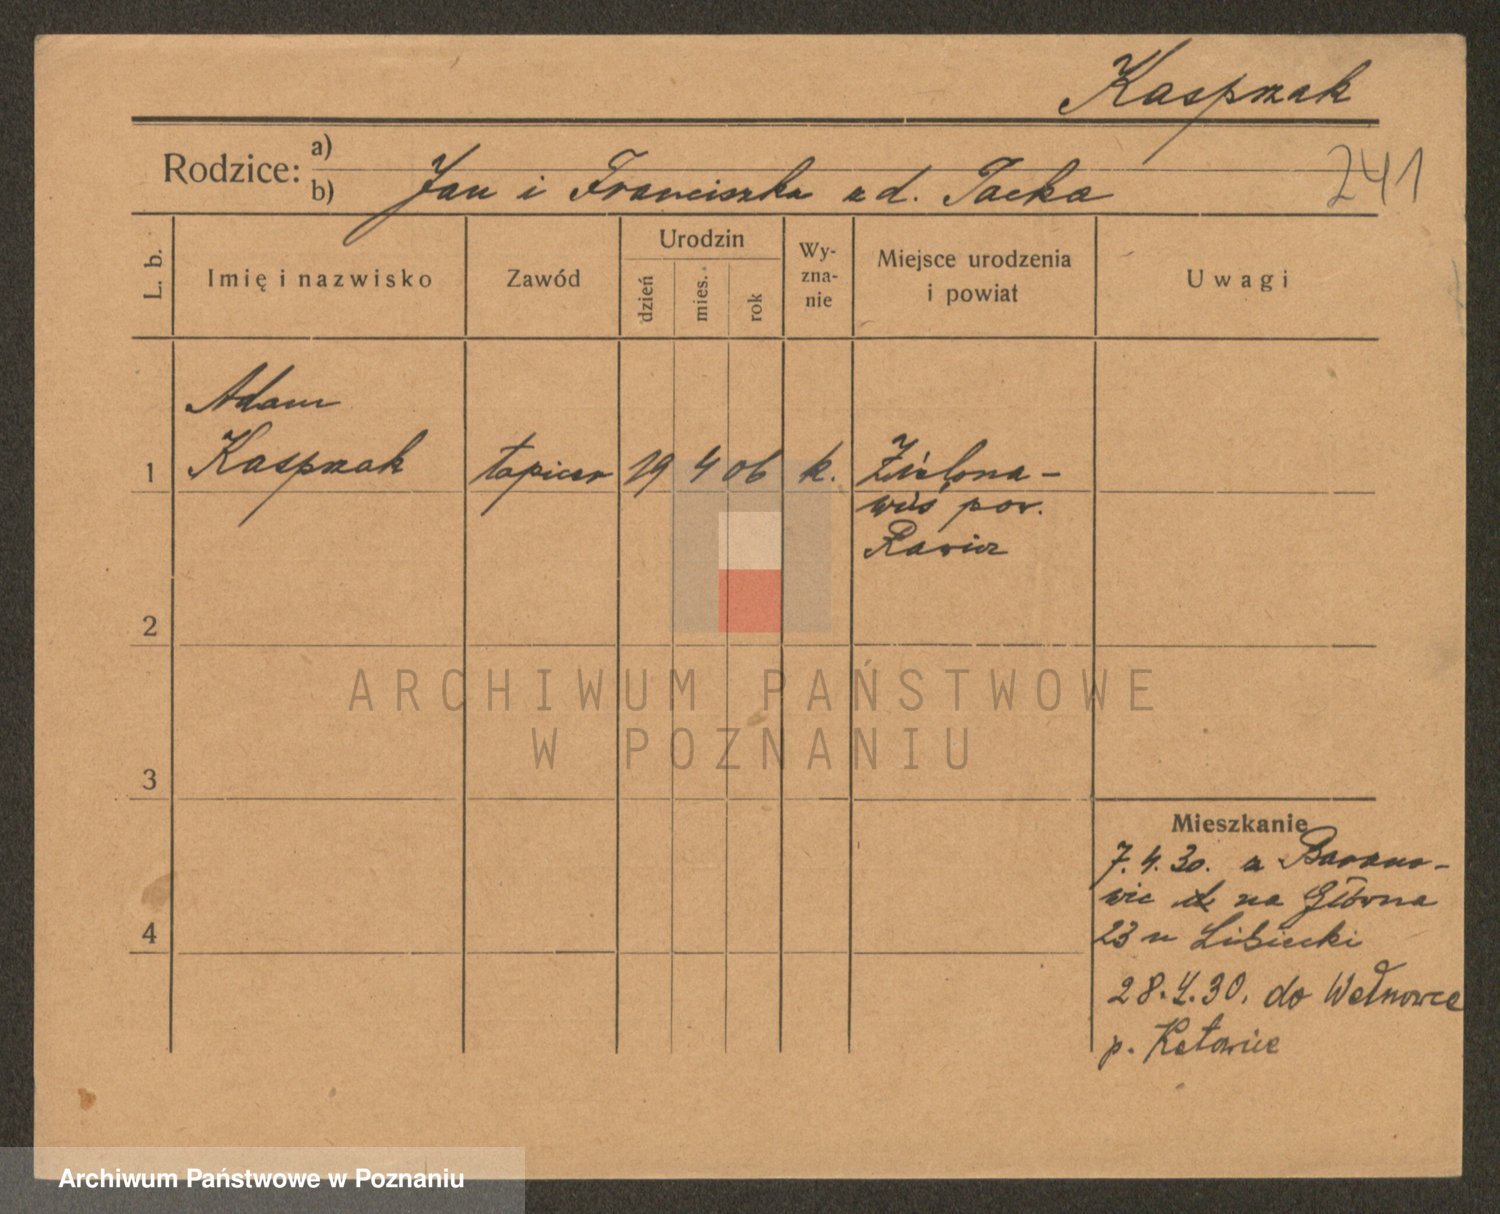 Kasprzak
Rodzice: a)
b) Jan i Franciszka z d. Packa
241
L. b.
Imię i nazwisko
Zawód
Urodzin
dzień
mies.
rok
Wy-
zna-
nie
Miejsce urodzenia
i powiat
Uwagi
Adam
1 Kasprzak tapicer 19 4 06 k. Zielona-
wieś pow.
Rawicz
2
3
4
ARCHIWUM PAŃSTWOWE
W POZNANIU
Mieszkanie
7.4.30. z Barano-
wic na Główna
23 u Libiecki
28.4.30. do Wełnowce
p. Katowice
Archiwum Państwowe w Poznaniu